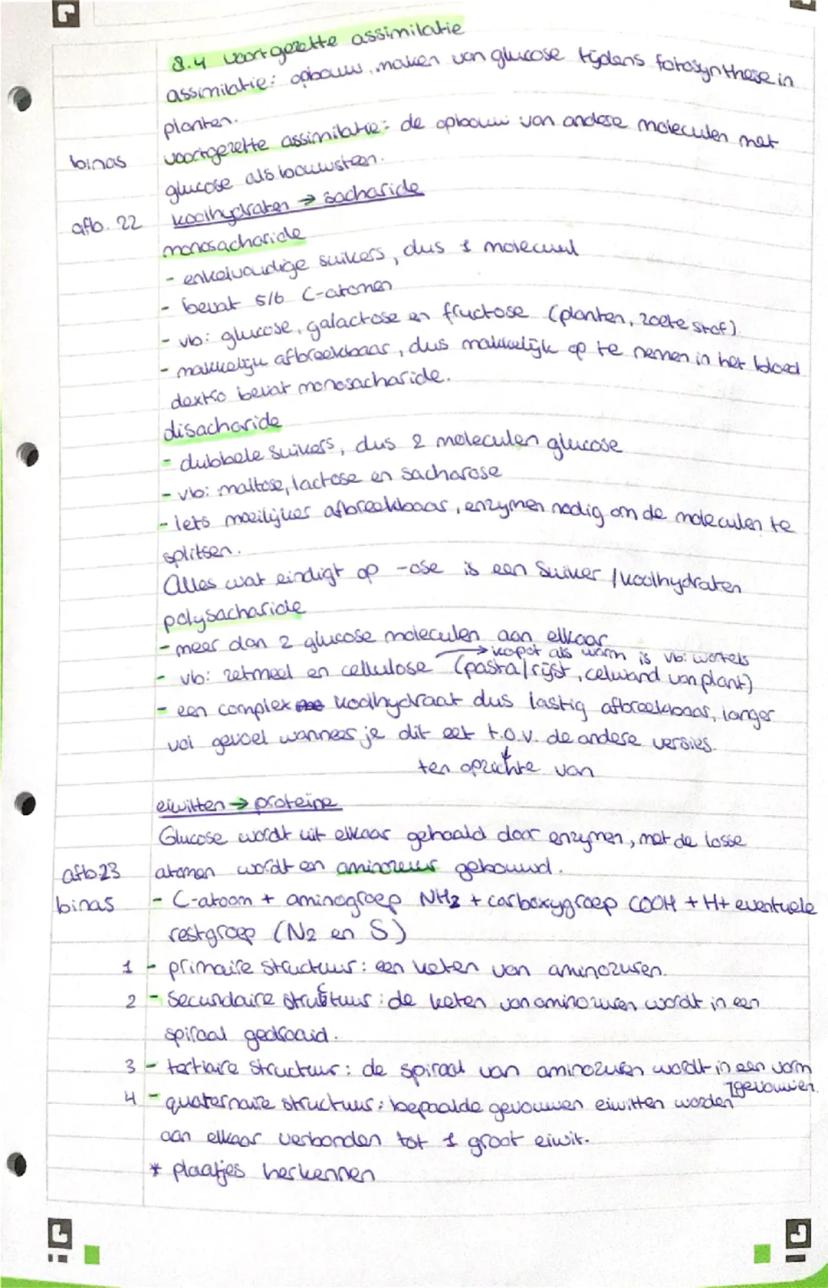 8.4 voortgezette assimilatie
assimilatie: opbouw, maken van glucose tijdens fotosynthese in
planten.
binas voortgezette assimilatie: de opbouw van andere moleculen met
glucose als bouwsteen.
afb. 22 koolhydraten → sacharide
monosacharide
- enkelvoudige suikers, dus 1 molecuul
- bevat 5/6 C-atomen
- vb: glucose, galactose en fructose (planten, zoete stof)
- makkelijk afbreekbaar, dus makkelijk op te nemen in het bloed
dextro bevat monosacharide.
disacharide
- dubbele suikers, dus 2 moleculen glucose
- vb: maltose, lactose en sacharose
- iets moeilijker afbreekbaar, enzymen nodig om de moleculen te
splitsen.
Alles wat eindigt op -ose is een suiker / koolhydraten
polysacharide
- meer dan 2 glucose moleculen aan elkaar
→ kapot als warm is vb: wortels
- vb: zetmeel en cellulose (pasta/rijst, celwand van plant)
- een complex koolhydraat dus lastig afbreekbaar, langer
vol gevoel wanneer je dit eet t.o.v. de andere versies.
ten opzichte van
eiwitten → proteine
Glucose wordt uit elkaar gehaald door enzymen, met de losse
afb 23 atomen wordt en aminozuur gebouwd.
binas - C-atoom + aminogroep NH2 + carboxygroep COOH + H + eventuele
restgroep (N2 en S)
1 - primaire structuur: een keten van aminozuren.
2 - secundaire structuur: de keten van aminozuren wordt in een
spiraal gedraaid.
3 - tertiaire structuur: de spiraal van aminozuren wordt in een vorm
gevouwen.
4 - quaternaire structuur: bepaalde gevouwen eiwitten worden
aan elkaar verbonden tot 1 groot eiwit.
* plaatjes herkennen